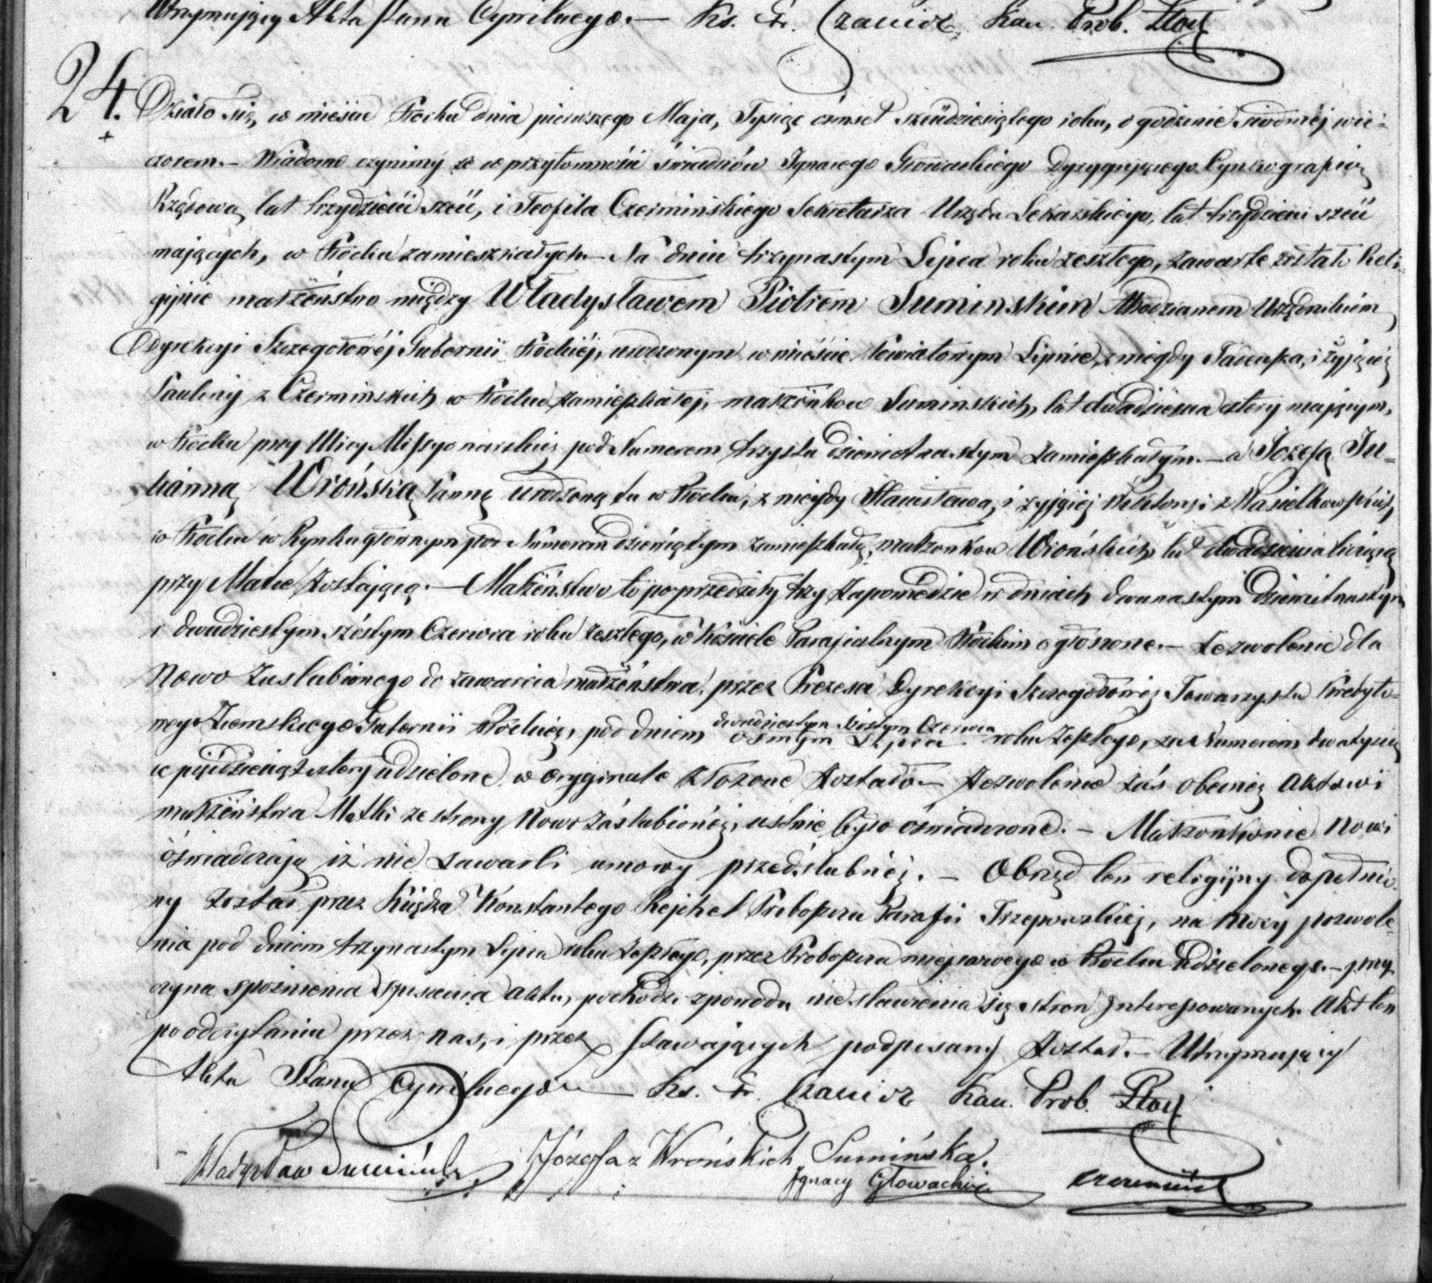 Utrzymujący Akta Stanu Cywilnego. — Ks. F. Czanior Kan. Prob. Płock
24. Działo się, w mieście Płocku dnia pierwszego Maja, Tysiąc ośmset sześćdziesiątego roku, o godzinie siódmej wie-
czorem. — Wiadomo czynimy że w przytomności świadków Ignacego Głowackiego Dyrygującego
Rządową, lat trzydzieści sześć, i Teofila Czermińskiego Sekretarza Urzędu Lekarskiego, lat trzydzieści sześć
mających, w Płocku zamieszkałych — Na dniu trzynastym Lipca roku zeszłego, zawarte zostało Reli-
gijne małżeństwo między Władysławem Piotrem Suminskim Młodzianem Urzędnikiem
Dyrekcyi Szczegółowej Gubernii Płockiej, urodzonym w mieście Powiatowym Lipnie, z niegdy Tadeusza, i żyjącej
Pauliny z Czermińskich w Płocku zamieszkałej, — małżonków Suminskich, lat dwadzieścia cztery mającym,
w Płocku przy Ulicy Missyonarskiej pod Numerem trzysta dziewietnastym zamieszkałym. — a Józefą Ju-
lianną Wrońską Panną urodzoną tu w Płocku, z niegdy Stanisława, i żyjącej Wiktoryi z Wasielkowskich,
w Płocku w Rynku głównym pod Numerem dziewiątym zamieszkałą, małżonków Wrońskich, lat dwadzieścia liczącą
przy Matce zostającą. — Małżeństwo to poprzedziły trzy Zapowiedzie w dniach dwunastym dziewiętnastym
i dwudziestym szóstym Czerwca roku zeszłego, w Kościele Parafialnym Płockim ogłoszone. — Zezwolenie dla
Nowo Zaslubionego do zawarcia małżeństwa, przez Prezesa Dyrekcyi Szczegółowej Towarzystwa Kredyto-
wego Ziemskiego Gubernii Płockiej, pod dniem dwudziestym szóstym Czerwca ósmym Lipca roku zeszłego, za Numerem dwa tysią-
ce pięćdziesiąt cztery udzielone w oryginale złożone zostało — Zezwolenie zaś obecnej aktowi
małżeństwa Matki ze strony Nowo zaślubionej, ustnie było oświadczone. — Małżonkowie Nowi
oświadczają iż nie zawarli umowy przedślubnej. — Obrzęd ten religijny dopełnio-
ny został przez Księdza Konstantego Rejchel Proboszcza Parafii Trzepowskiej, na mocy pozwole-
nia pod dniem trzynastym Lipca roku zeszłego, przez Proboszcza miejscowego w Płocku udzielonego. — przy-
czyna spóźnienia spisania aktu, pochodzi z powodu nie stawienia się stron Interesowanych. Akt ten
po odczytaniu przez nas, i przez Stawających podpisany został. — Utrzymujący
Akta Stanu Cywilnego — Ks. F. Czanior Kan. Prob. Płock
Władysław Sumiński Józefa z Wrońskich Sumińska.
Ignacy Głowacki Czermiński